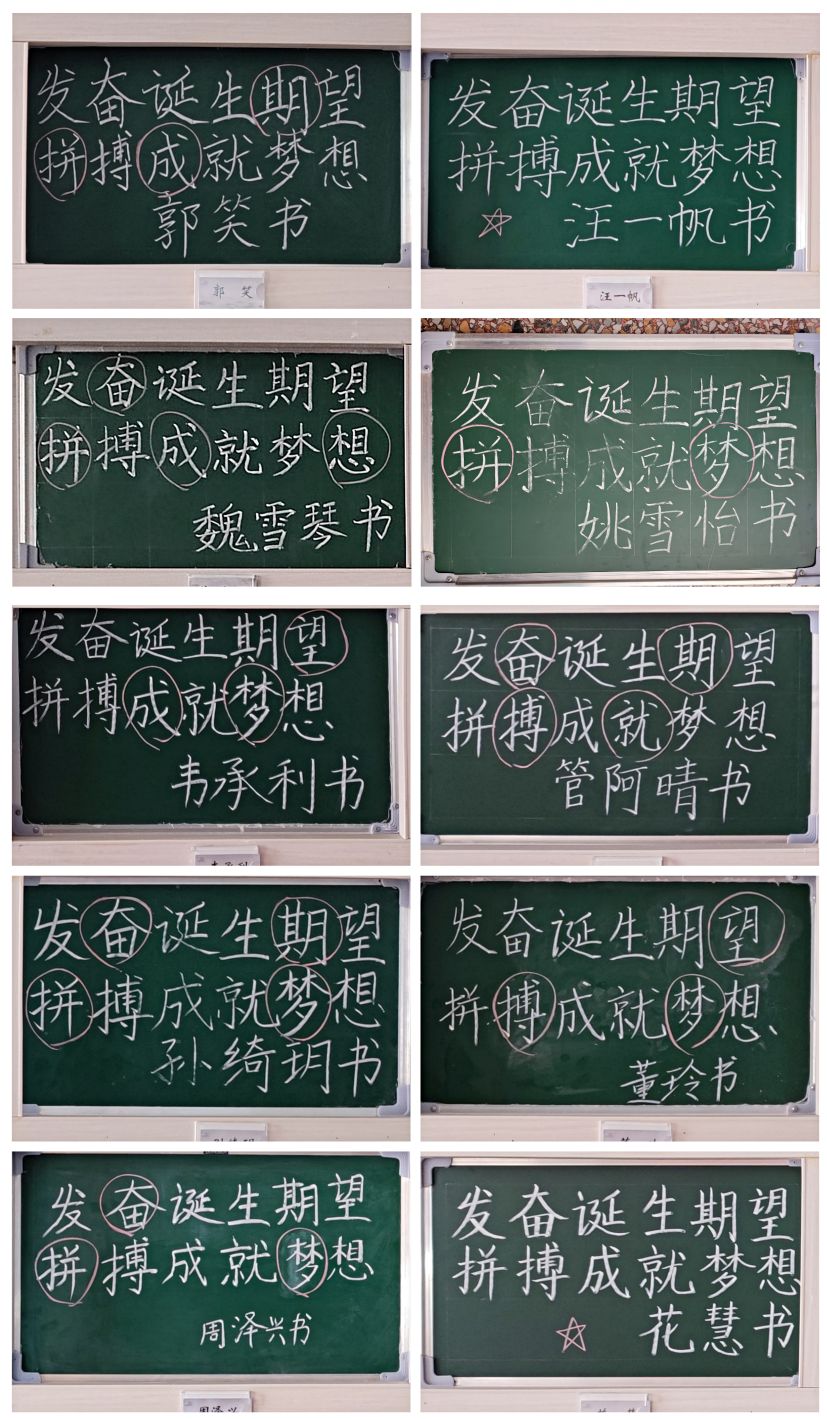 发奋诞生期望
拼搏成就梦想
郭笑书
郭 笑
发奋诞生期望
拼搏成就梦想
汪一帆书
汪一帆
发奋诞生期望
拼搏成就梦想
魏雪琴书
发奋诞生期望
拼搏成就梦想
姚雪怡书
发奋诞生期望
拼搏成就梦想
韦承利书
发奋诞生期望
拼搏成就梦想
管阿晴书
发奋诞生期望
拼搏成就梦想
孙绮玥书
发奋诞生期望
拼搏成就梦想
董玲书
发奋诞生期望
拼搏成就梦想
周泽兴书
周泽兴
发奋诞生期望
拼搏成就梦想
花慧书